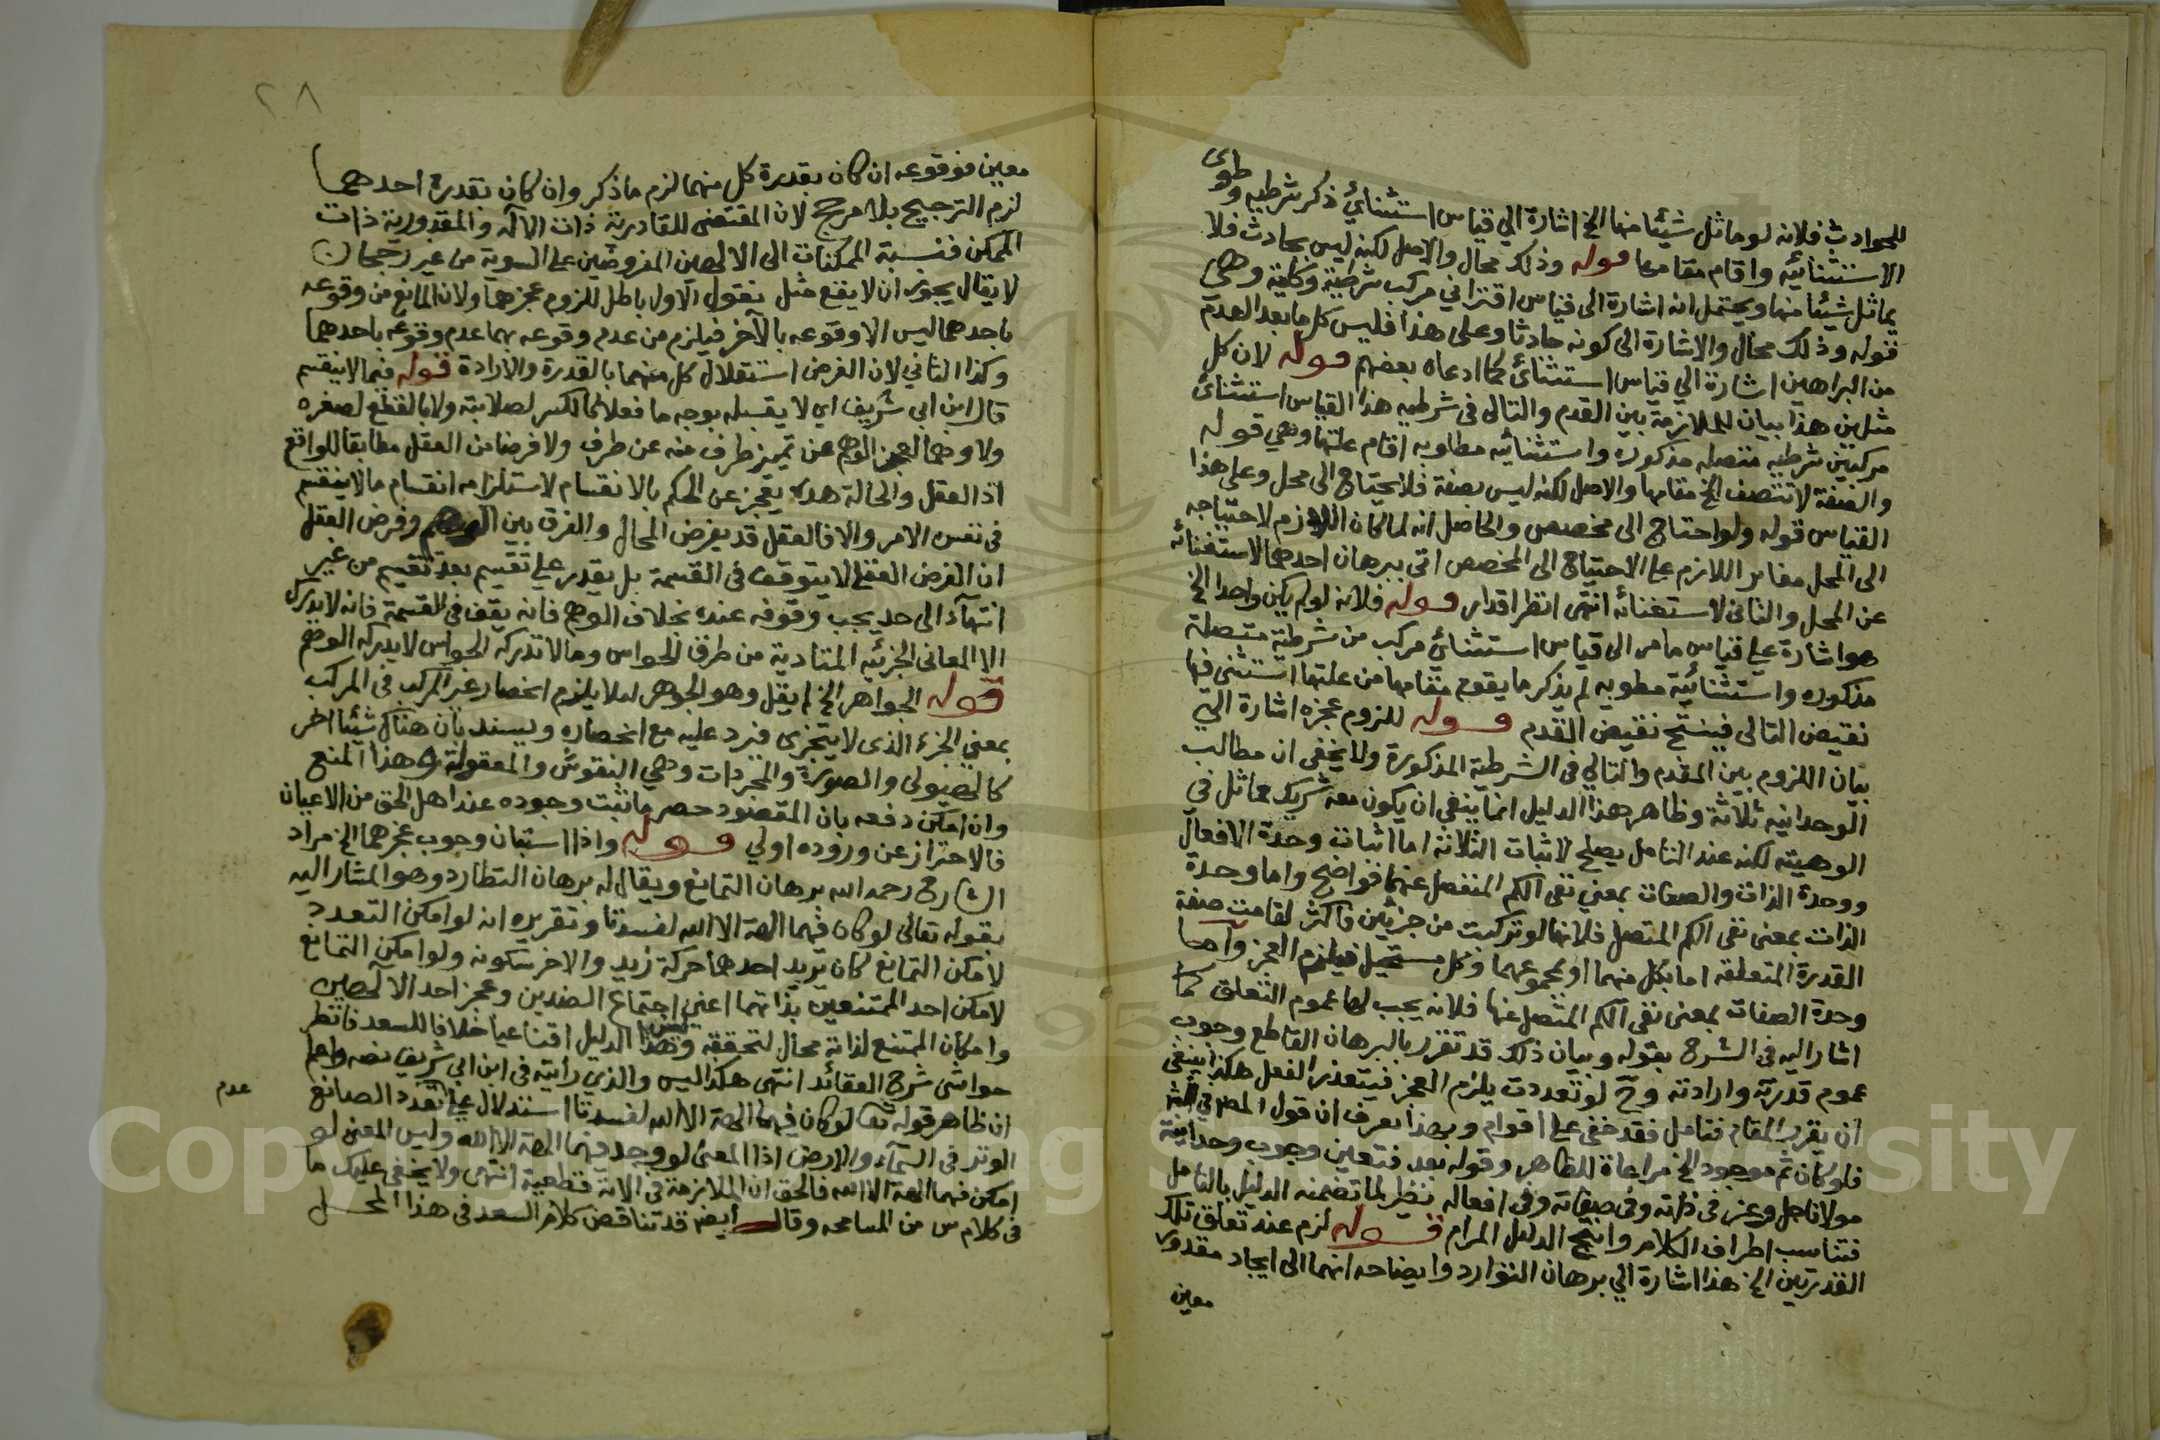 للحوادث فلانه لو ماثل شيئا منها الخ اشارة الي قياس استثنائي ذكر شرطيه وطوى
الاستثنائيه واقام مقامها قوله وذلك محال والاصل لكنه ليس بحادث فلا
يماثل شيئا منها ويحتمل انه اشارة الى قياس اقتراني مركب شرطية وكلية وهي
قوله وذلك محال والاشارة الى كونه حادثا وعلى هذا فليس كل ما بعد العدم
من البراهين اشارة الي قياس استثنائي كما ادعاه بعضهم قوله لان كل
مثلين هذا بيان للملازمة بين القدم والتالى فى شرطيه هذا القياس استثنائى
مركبين شرطيه متصله مذكوره واستثنائيه مطاويه اقام علتها وهي قوله
والصفة لا تتصف الخ مقامها والاصل لكنه ليس بصفة فلا يحتاج الى محل وعلى هذا
القياس قوله ولو احتاج الى مخصص والحاصل انه لما كان اللازم لاحتياجه
الى المحل مغاير اللازم على الاحتياج الى المخصص اتى ببرهان احدهما لاستغنائه
عن المحل والثانى لاستغنائه انتهى انظر اقدار قوله فلانه لو لم يكن واحدا الخ
هو اشارة على قياس ما مر الى قياس استثنائي مركب من شرطية متصلة
مذكوره واستثنائية مطويه لم يذكر ما يقوم مقامها من علتها استثنى فيها
نقيض التالى فينتج نقيض القدم قوله للزوم عجزه اشارة الي
بيان اللزوم بين المقدم والتالي في الشرطية المذكورة ولا يخفى ان مطالب
الوحدانيه ثلاثة وظاهر هذا الدليل انما ينفى ان يكون معه شريك مماثل في
الوهيته لكنه عند التامل يصلح لاثبات الثلاثة اما اثبات وحدة الافعال
ووحدة الذات والصفات بمعني نفى الكم المنفصل عنهما فواضح واما وحدة
الذات بمعنى نفى الكم المتصل فلانها لو تركبت من جزئين فاكثر لقامت صفة
القدرة المتعلقه اما بكل منهما او بمجموعهما وكل مستحيل فيلزم العجز واما
وحدة الصفات بمعنى نفى الكم المتصل عنها فلانه يجب لها عموم التعلق كما
اشار اليه فى الشرح بقوله وبيان ذلك قد تقرر بالبرهان القاطع وجوب
عموم قدرته وارادته وح لو تعددت يلزم العجز فيتعذر الفعل هكذا ينبغى
ان يقرر المقام فتامل فقد خفى على اقوام وبهذا يعرف ان قول المص في الشر
فلو كان ثم موجود الخ مراعاة للظاهر وقوله بعد فتعين وجوب وحدانية
مولانا جل وعز فى ذاته وفى صفاته وفى افعاله نظر لما تضمنه الدليل بالتامل
فتناسب اطراف الكلام وانتج الدليل المرام قوله لزم عند تعلق تلك
القدرتين الخ هذا اشارة الي برهان التوارد وايضاحه انهما الى ايجاد مقدور
معين
٢٨
معين فوقوعه ان كان بقدرة كل منهما لزم ما ذكر وان كان بقدرة احدهما
لزم الترجيح بلا مرجح لان المقتضى للقادرية ذات الاله والمقدورية ذات
الممكن فنسبة الممكنات الى الالهين المفروضين على السوية من غير رجحان
لا يقال يجوز ان لا يقع مثل نقول الاول باطل للزوم عجزهما ولان المانع من وقوعه
باحدهما ليس الا وقوعه بالآخر فيلزم من عدم وقوعه بهما عدم وقوعه باحدهما
وكذا الثاني لان الفرض استقلال كل منهما بالقدرة والارادة قوله فيما لا ينقسم
قال ابن ابي شريف اي لا يقسبله بوجه ما فعلا لا كالكسر لصلابته ولا بالقطع لصغره
ولا وهما لعجز الوهم عن تميز طرف منه عن طرف ولا فرضا من العقل مطابقا للواقع
اذ العقل والحالة هذه يعجز عن الحكم بالانقسام لاستلزامه انقسام ما لا ينقسم
فى نفس الامر والا فالعقل قد يفرض المحال والفرق بين الوهم وفرض العقل
ان الفرض العقلى لا يتوقف فى القسمة بل يقدر على تقسيم بعد تقسيم من غير
انتهاء الى حد يجب وقوفه عنده بخلاف الوهم فانه يقف فى القسمة فانه لا يدرك
الا المعانى الجزئيه المتادية من طرق الحواس وما لا تدركه الحواس لا يدركه الوهم
قوله الجواهر الخ لم يقل وهو الجوهر لئلا يلزم انحصار غير المركب فى المركب
بمعنى الجزء الذى لا يتجزى فيرد عليه مع انحصاره ويسند بان هناك شيئا اخر
كالهيولى والصورة والمجردات وهي النفوس والمعقولة وهذا المنع
وان امكن دفعه بان المقصود حصر ما ثبت وجوده عند اهل الحق من الاعيان
فالاحتراز عن وروده اولي قوله واذا استبان وجوب عجزهما الخ مراد
الشارح رحمه الله برهان التمانع ويقال له برهان التطارد وهو المشار اليه
بقوله تعالى لو كان فيهما الهة الا الله لفسدتا وتقريره انه لو امكن التعدد
لامكن التمانع كان يريد احدهما حركة زيد والاخر سكونه ولو امكن التمانع
لامكن احد الممتنعين بذاتهما اعنى اجتماع الضدين وعجز احد الالهين
وامكان الممتنع لذاته محال لتحققه وليس هذا الدليل اقناعيا خلافا للسعد فانظر
حواشى شرح العقائد انتهى هكذا ليس والذي رأيته فى ابن ابي شريف نصه واعلم
ان ظاهر قوله تعالى لو كان فيهما الهة الا الله لفسدتا استدلال على تعدد الصانع
عدم
الوتر فى السماء والارض اذ المعنى لو وجد فيهما الهة الا الله وليس المعنى لو
امكن فيهما الهة الا الله فالحق ان الملازمة فى الاية قطعية انتهى ولا يخفى عليك ما
فى كلام س من المسامحه وقال ايضا قد تناقض كلام السعد فى هذا المحل
Copyright © King Saud University